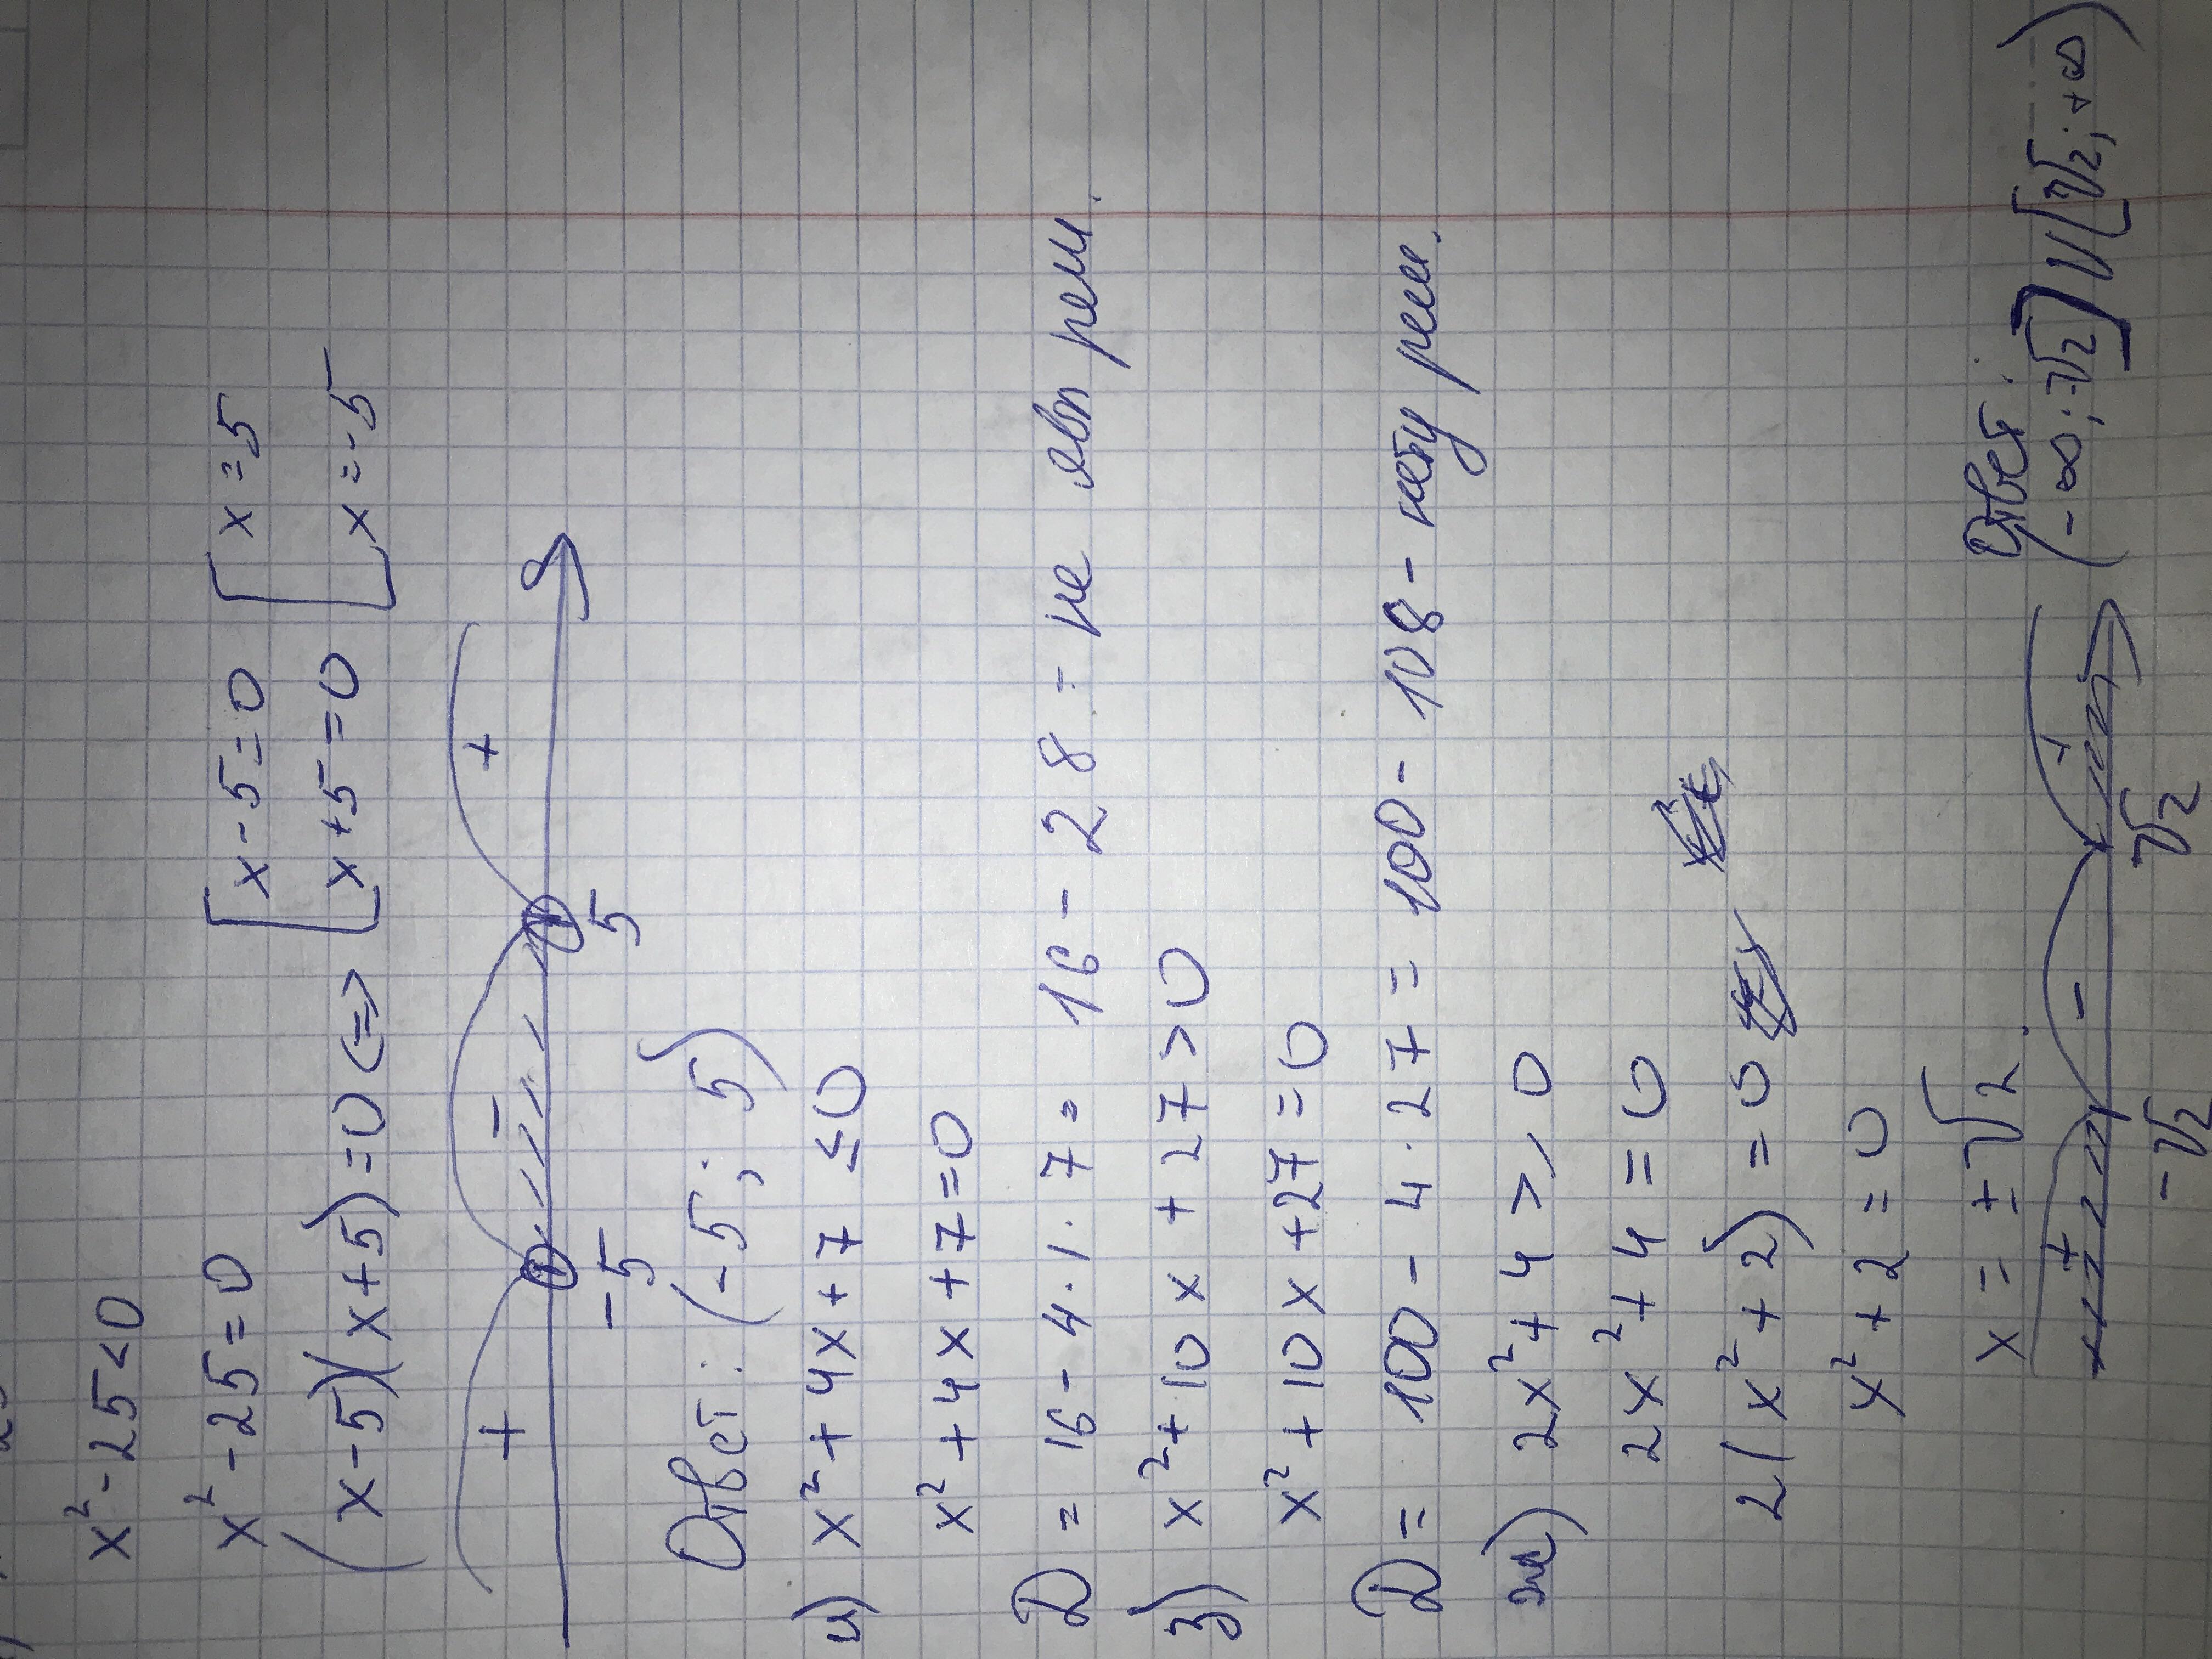 x² - 25 < 0
x² - 25 = 0
(x - 5)(x + 5) = 0 <=> [x - 5 = 0 [x = 5
[x + 5 = 0 [x = -5
+ - +
-5 5
Ответ: (-5; 5)
и) x² + 4x + 7 ≤ 0
x² + 4x + 7 = 0
D = 16 - 4 · 1 · 7 = 16 - 28 - не явл реш.
з) x² + 10x + 27 > 0
x² + 10x + 27 = 0
D = 100 - 4 · 27 = 100 - 108 - нету реш.
ж) 2x² + 4 ≥ 0
2x² + 4 = 0
2(x² + 2) = 0
x² + 2 = 0
x = ±√2.
+ - +
-√2 √2
Ответ:
(-∞; -√2] V [√2; +∞)